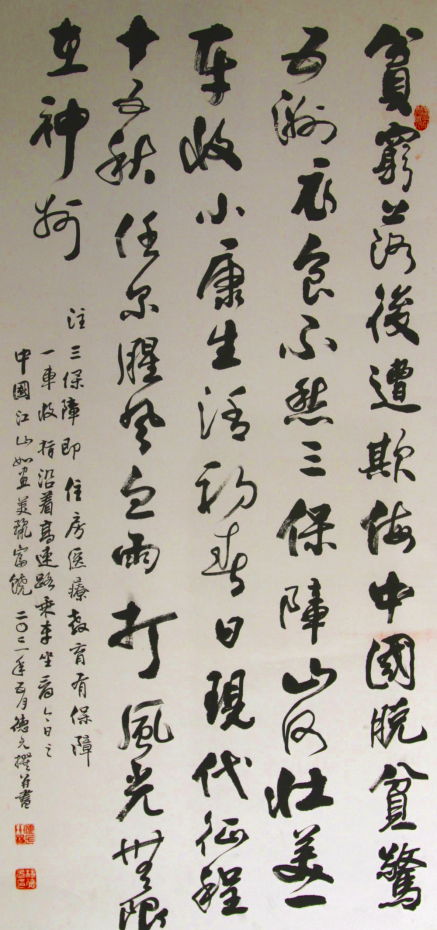 貧窮落後遭欺侮中國脱貧驚
五洲衣食不愁三保障山河壯美一
车收小康生活初春日現代征程
十五秋任尔腥风血雨打風光無限
在神州
注三保障即住房医療教育有保障
一車收指沿着高速路乘车坐看今日之
中國江山如画美麗富饒二〇二一年五月德元撰并書